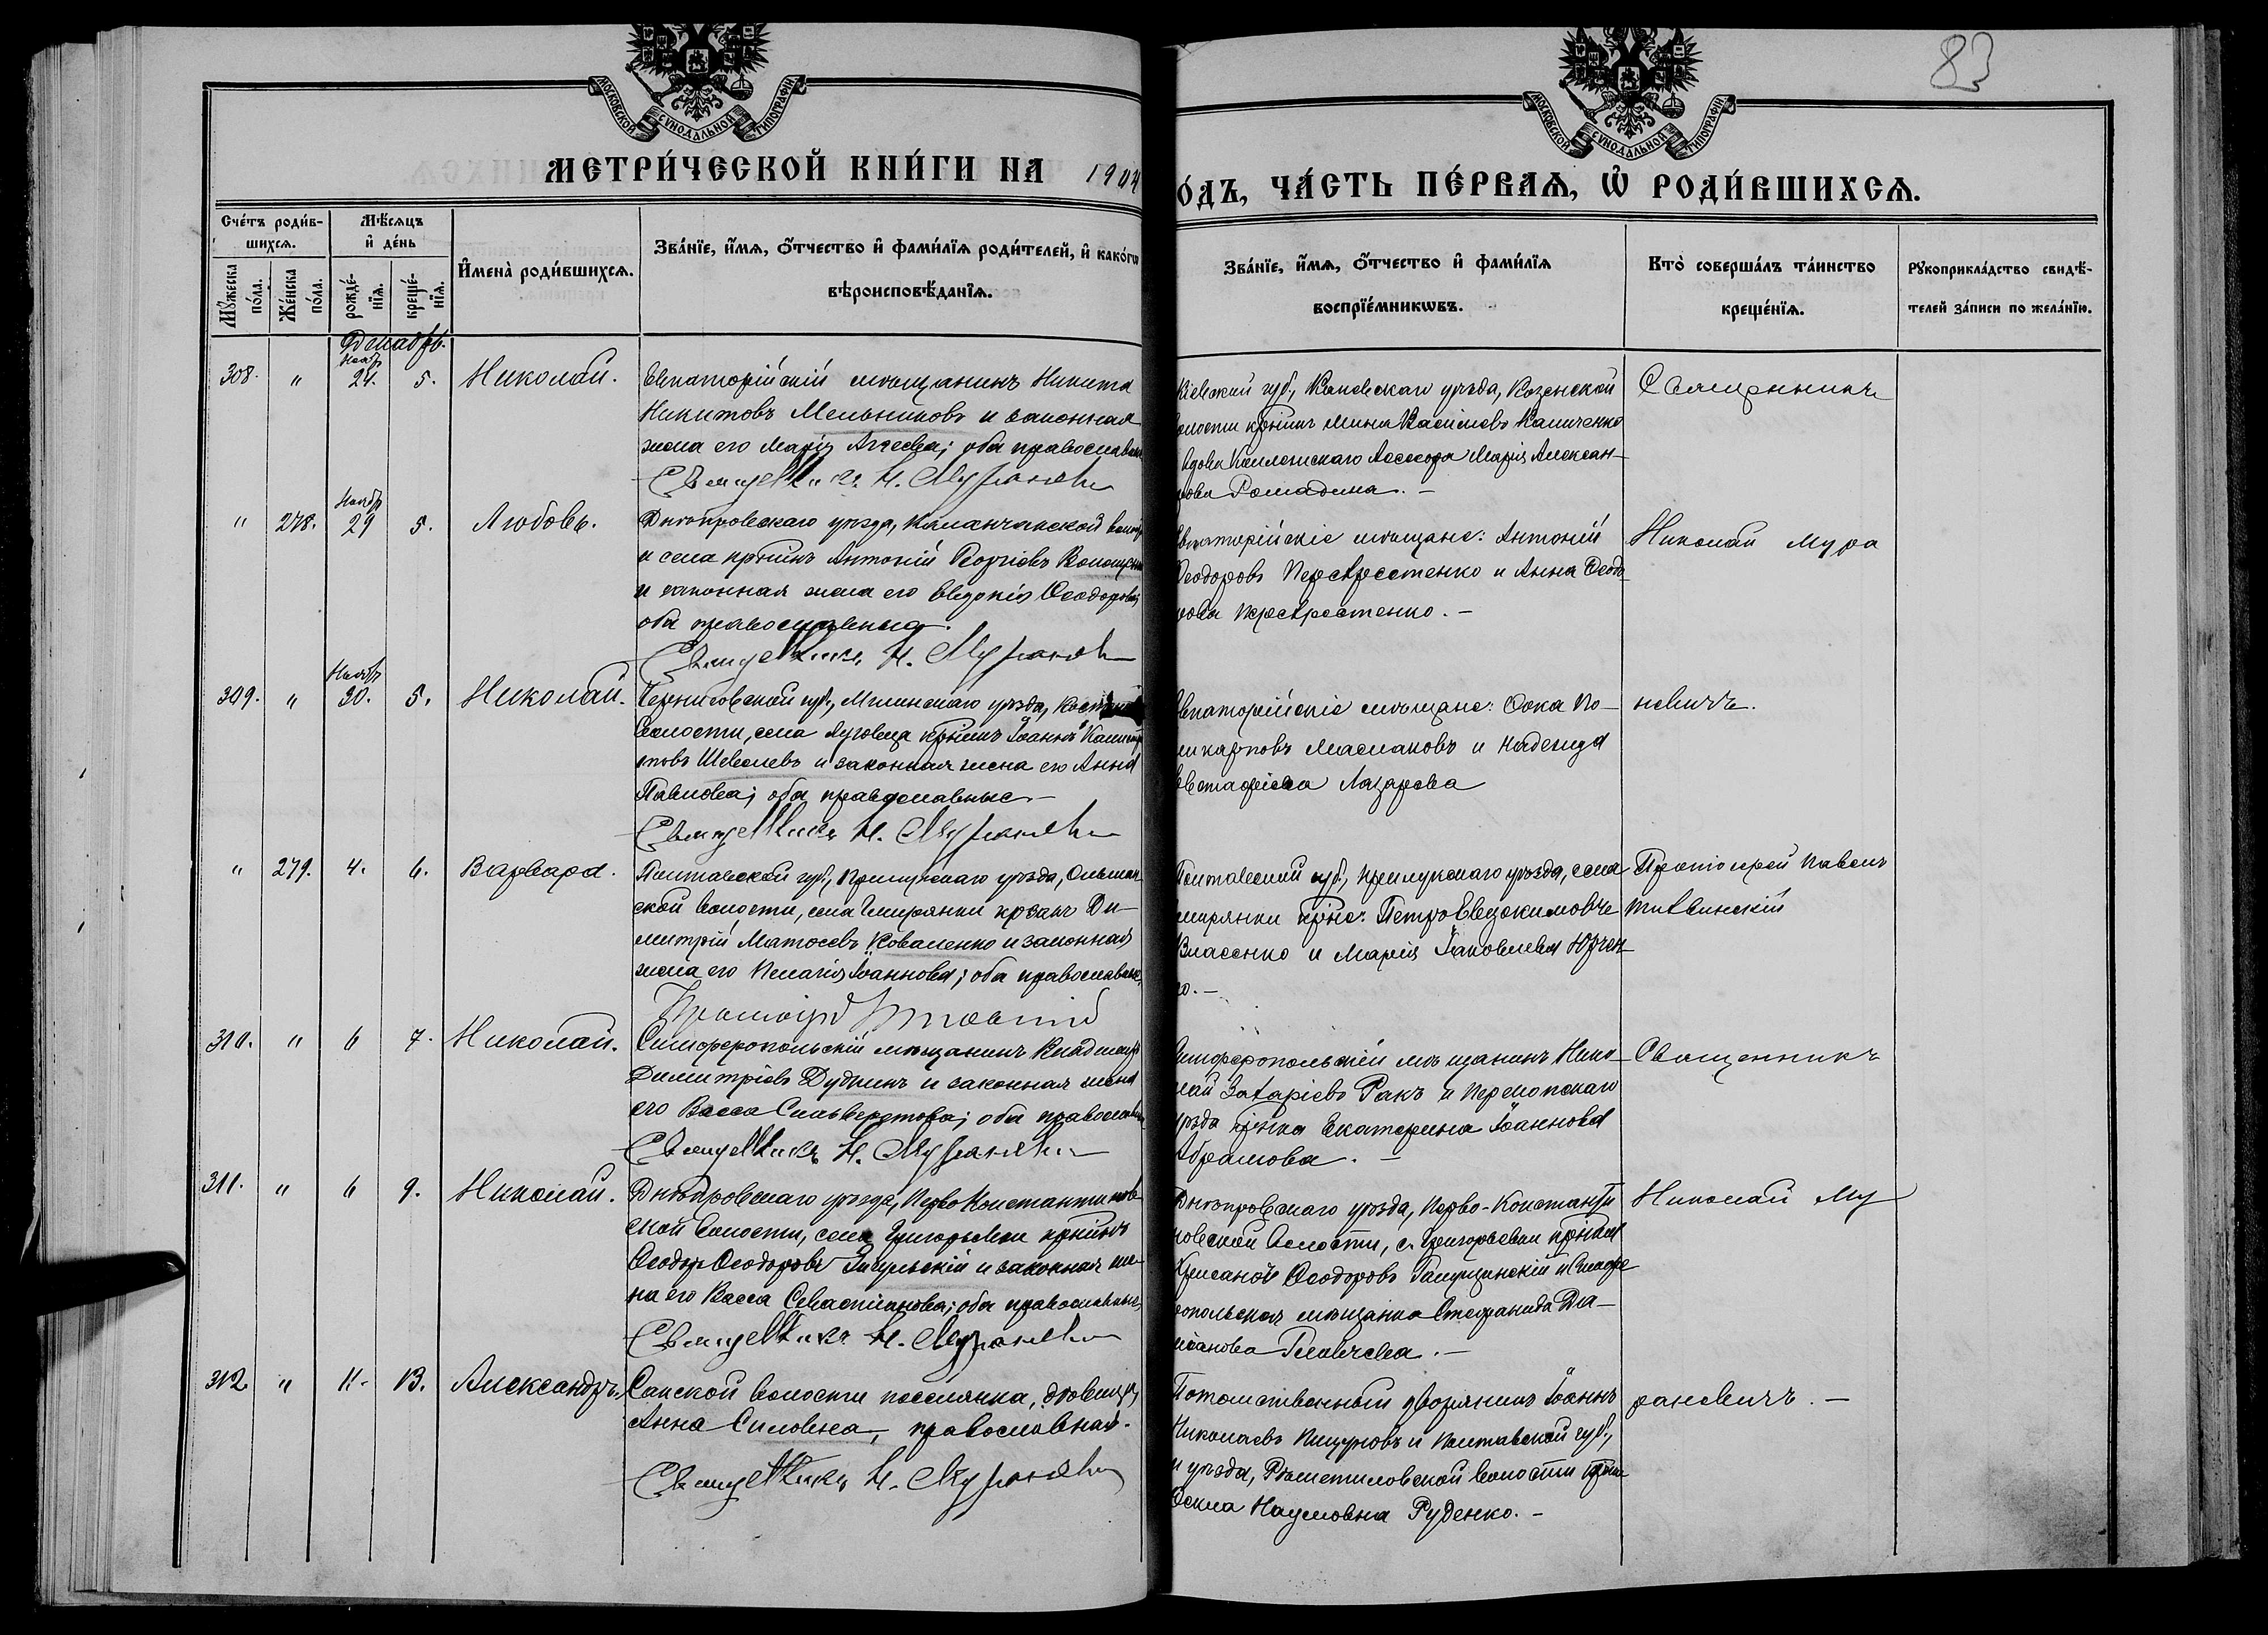 83
МОСКОВСКОЙ СѴНОДАЛЬНОЙ ТИПОГРАФІИ
МОСКОВСКОЙ СѴНОДАЛЬНОЙ ТИПОГРАФІИ
МЕТРИ́ЧЕСКОЙ КНИ́ГИ НА 1904
О́ДЪ, ЧА́СТЬ ПЕ́РВАѦ, Ѡ҆ РОДИ́ВШИХСѦ.
Сче́тъ роди́в-
шихсѧ.
Мѣ́сѧцъ
и҆ де́нь
Мꙋ́жеска
по́ла.
Же́нска
по́ла.
рожде́-
нїѧ.
креще́-
нїѧ.
И҆мена̀ роди́вшихсѧ.
Зва́нїе, и҆́мѧ, ѻ҆́тчество и҆ фами́лїѧ роди́телей, и҆ како́гѡ
вѣроисповѣ́данїѧ.
Зва́нїе, и҆́мѧ, ѻ҆́тчество и҆ фами́лїѧ
воспрїе́мникѡвъ.
Кто̀ соверша́лъ та́инство
креще́нїѧ.
Рꙋкоприкла́дство свидѣ́-
телей за́писи по жела́нїю.
Декабрь.
308. " Нояб. 24. 5. Николай.
Евпаторійскій мѣщанинъ Никита
Никитовъ Мельниковъ и законная
жена его Марія Агеева; оба православн
Священникъ Н. Мураневич
Кіевской губ., Каневскаго уѣзда, Козенской
волости кр‑нинъ Мина Василіевъ Каличенко
вдова Коллежскаго Ассесора Марія Алексан-
рова Ромадина. –
Священникъ
" 278. Ноябр 29 5. Любовь.
Днѣпровскаго уѣзда, Каланчакской волост
и села кр‑нинъ Антоній Георгіевъ Волощен
и законная жена его Евдокія Ѳеодорова;
оба православные.
Священникъ Н. Мураневич
Евпаторійскіе мѣщане: Антоній
Ѳеодоровъ Перехрестенко и Анна Ѳеодо
рова Перехрестенко. –
Николай Мура
309. " Ноябр 30. 5. Николай.
Черниговской губ., Мглинскаго уѣзда,
волости, села Луговца кр‑нинъ Іоаннъ
товъ Шевелевъ и законная жена его Анна
Павлова; оба православные. –
Священникъ Н. Мураневич
впаторійскіе мѣщане: Ѳока По-
ликарповъ Маслаковъ и Надежда
Евстафіева Лазарева
невичъ.
" 279. 4. 6. Варвара.
Полтавской губ., Прилукскаго уѣзда, Ольшан
ской волости, села Гмирянки кр‑занъ Ди-
митрій Матѳеевъ Коваленко и законная
жена его Пелагія Іоаннова; оба православные,
Полтавской губ., Прилукскаго уѣзда, села
Гмирянки кр‑не: Петръ Евдокимовъ
Власенко и Марія Іаковлева Юрчен
ко. –
Протоіерей Павелъ
Тихвинскій
310. " 6 7. Николай.
Симферопольскій мѣщанинъ Владимиръ
Димитріевъ Дудкинъ и законная жена
его Васса Сильвестрова; оба православн
Священникъ Н. Мураневич
Симферопольскій мѣщанинъ Нико-
лай Захаріевъ Ракъ и Перекопскаго
уѣзда кр‑нка Екатерина Іоаннова
Абрамова. –
Священникъ
311. " 6 9. Николай.
Днѣпровскаго уѣзда, Перво Константинов
ской волости, села Григорьевки кр‑нинъ
Ѳеодоръ Ѳеодоровъ и законная же-
на его Васса Севастіанова; оба православные
Священникъ Н. Мураневич
Днѣпровскаго уѣзда, Перво-Константи
новской волости, с. Григорьевки кр‑нинъ
Хрисанѳъ Ѳеодоровъ и Симфе
ропольская мѣщанка Стефанида Да-
міанова
Николай Му
312. " 11. 13. Александръ.
Сакской волости поселянка, дѣвица,
Анна Силовна, православная.
Священникъ Н. Мураневич
Потомственный дворянинъ Іоаннъ
Николаевъ Пищуновъ и Полтавской губ.,
и уѣзда, Рѣшетиловской волости кр‑нка
Ѳекла Наумовна Руденко. –
раневичъ. –